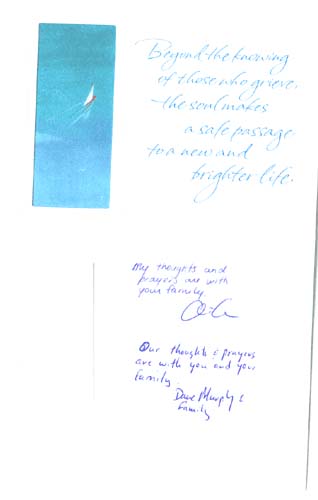 Beyond the knowing
of those who grieve,
the soul makes
a safe passage
to a new and
brighter life.
My thoughts and
prayers are with
your family
Our thoughts & prayers
are with you and your
family
Dave Murphy &
family